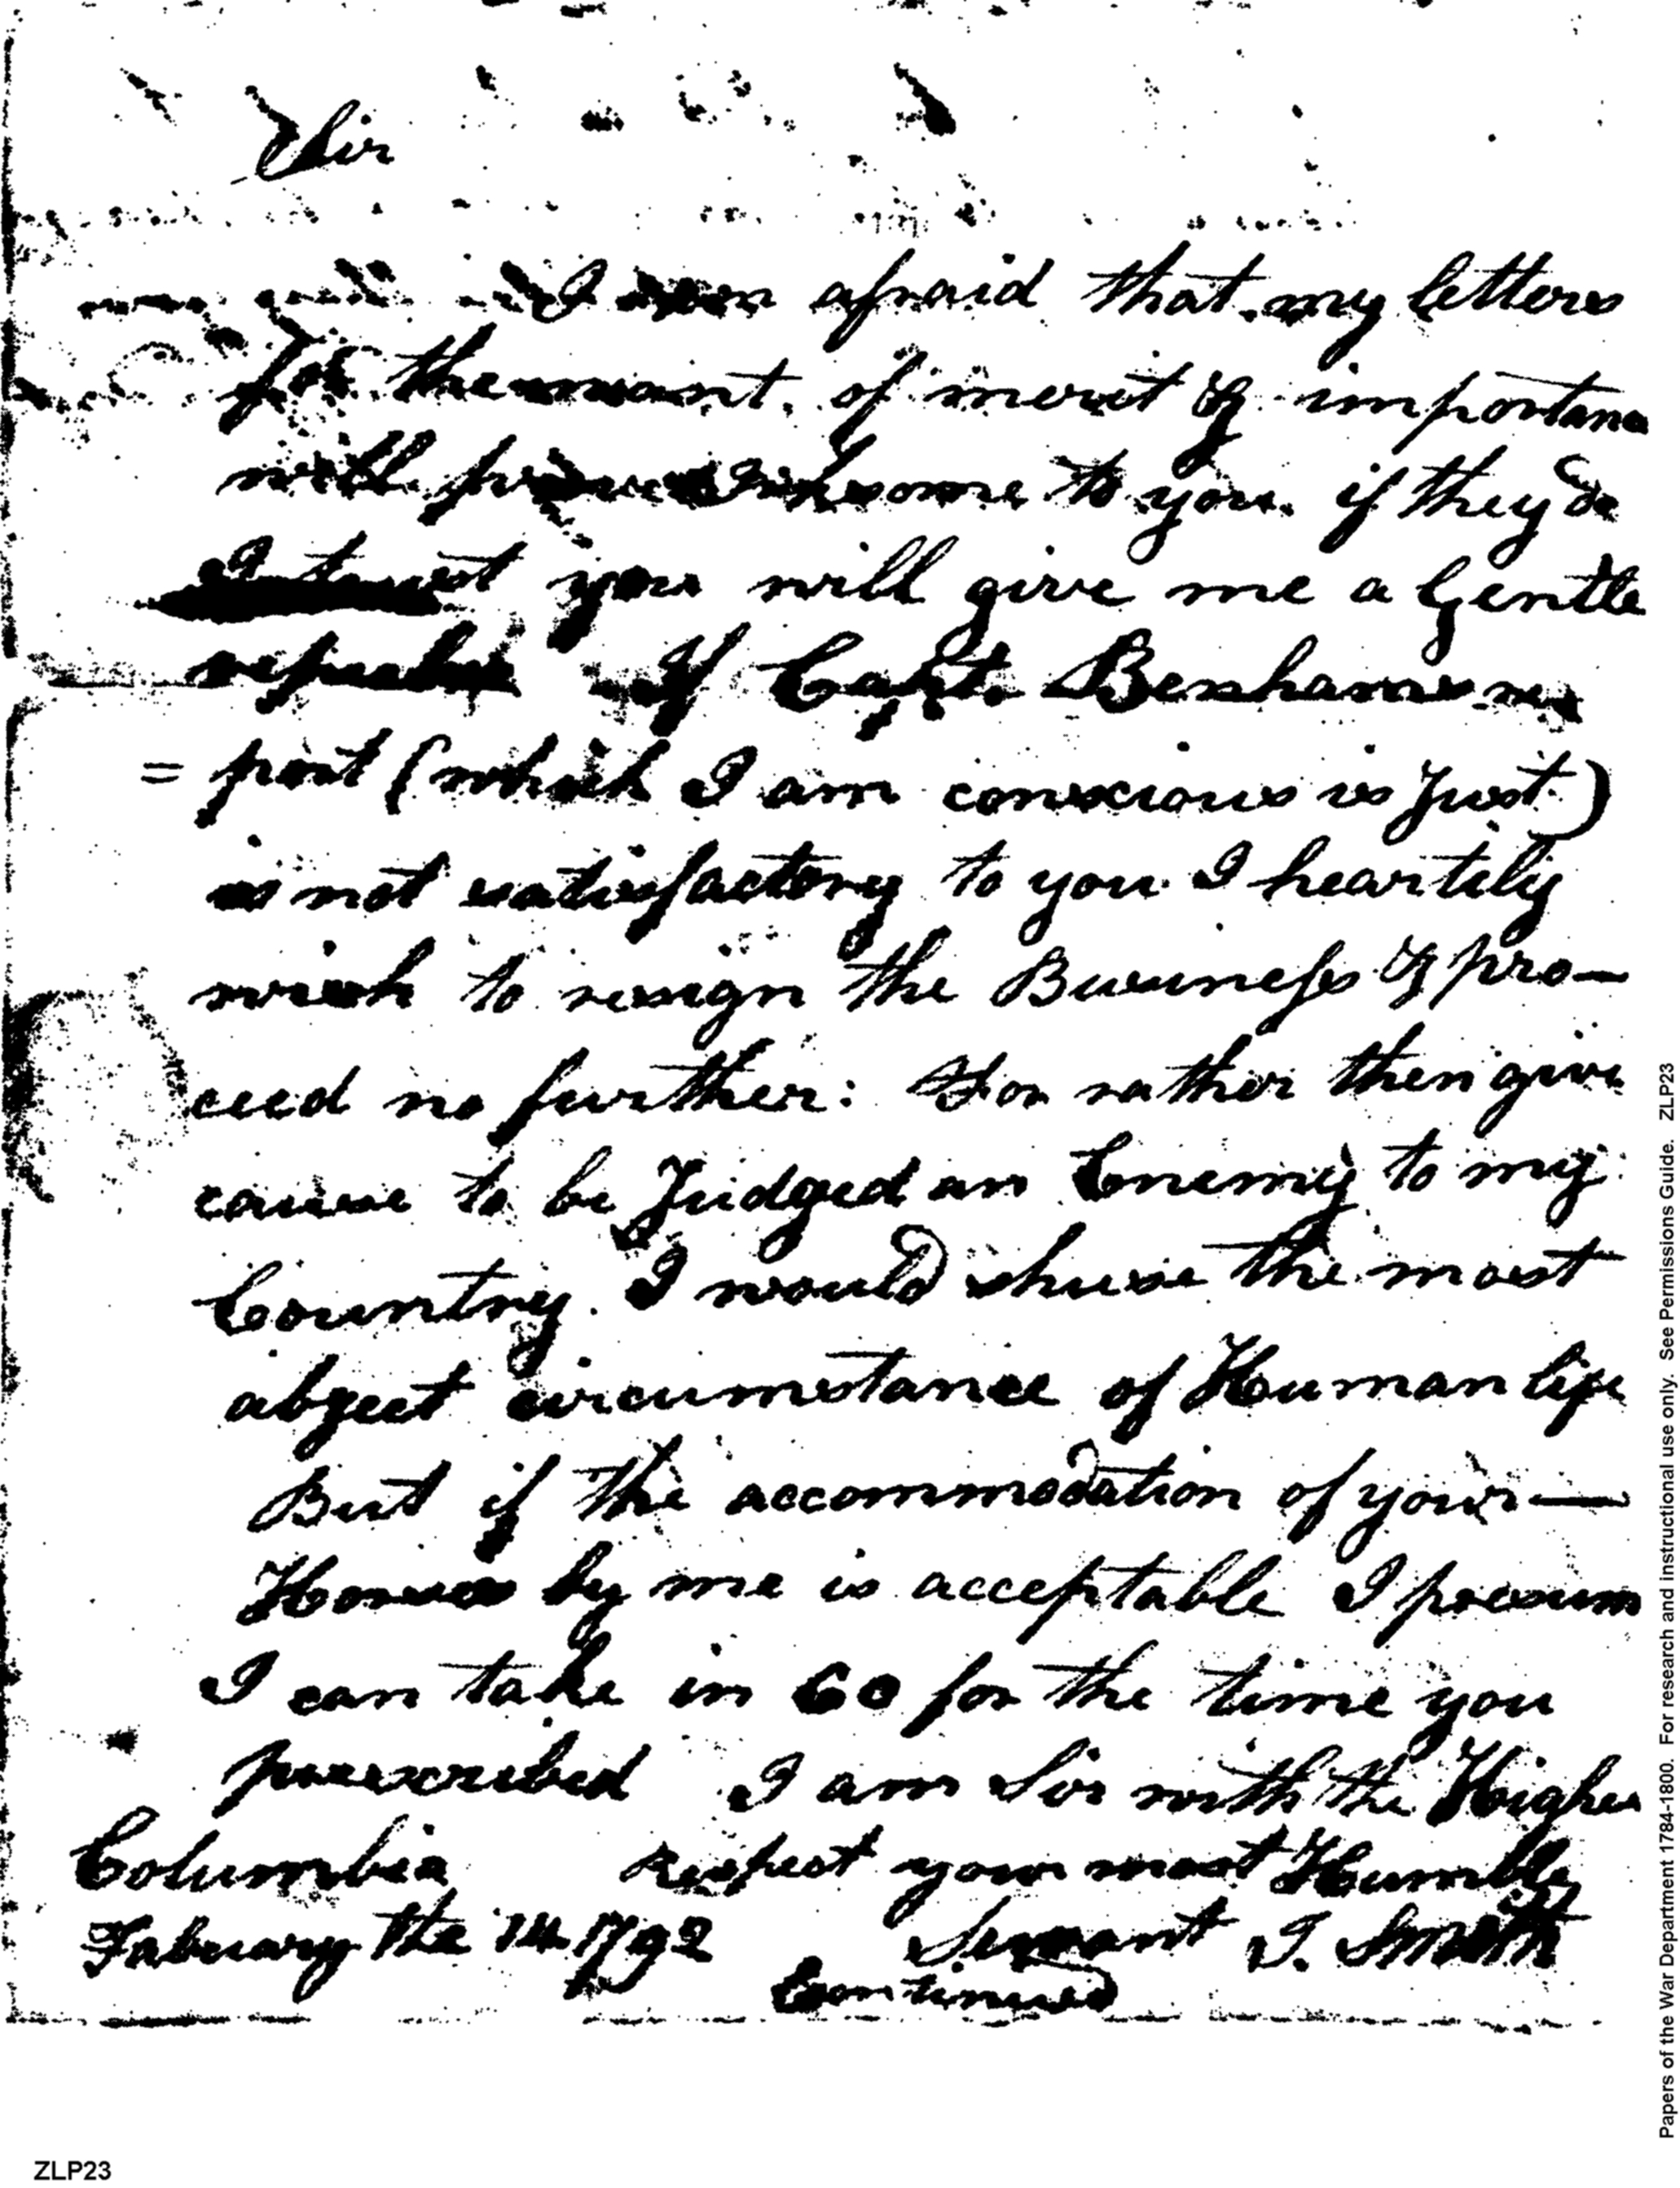 Sir
I am afraid that my letters
for the want of merit & importanc
will prove irksome to you. if they do
I trust you will give me a Gentle
repulse If Capt. Benhams re
= port (which I am conscious is Just)
is not satisfactory to you I heartily
wish to resign the Business & pro—
ceed no further: For rather then give
cause to be Judged an Enemy to my
Country. I would chuse the most
abject circumstance of Human life
But if the accommodation of your—
Horses by me is acceptable I presum
I can take in 60 for the time you
prescribed I am Sir with the Highes
Columbia Respect your most Humble
Fabuary the 14 1792 Servant I. Smith
Continued
ZLP23
Papers of the War Department 1784-1800. For research and instructional use only. See Permissions Guide. ZLP23